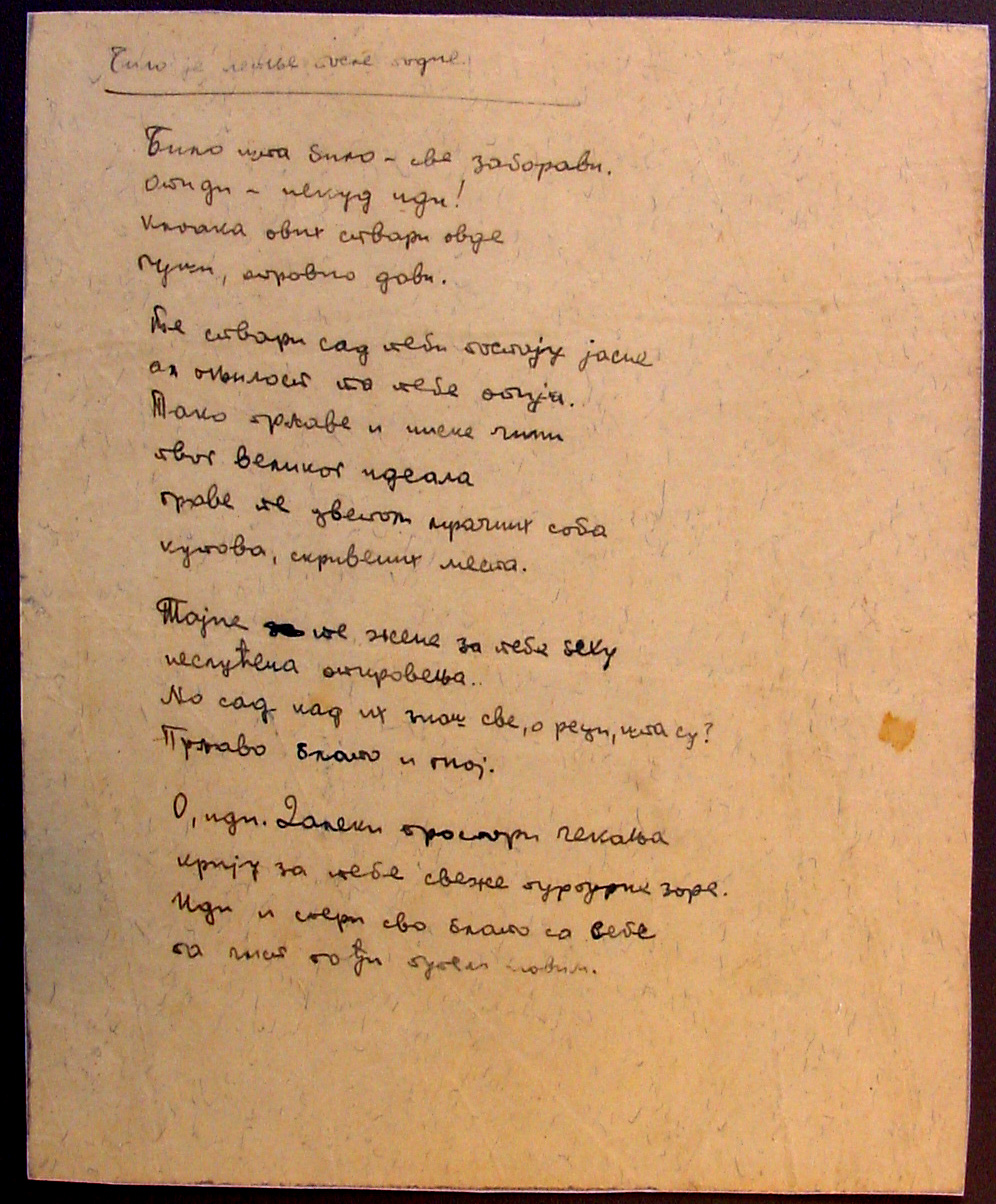 Било је летње после подне.
Било шта било - све заборави.
Отиди - некуд иди!
Клоака ових ствари овде
гуши, отровно дави.
Те ствари сад теби постају јасне
ал огњилост та тебе отуђи.
Тако прљаве и ниске чини
твог великог идеала
праве те цветом мрачних соба
кутова, скривених места.
Тајне те жене за тебе беху
неслућена откровења..
Но сад кад их знаш све, о реци, шта су?
Прљаво блато и гној.
О, иди. Далеки простори чекања
крију за тебе свеже пурпурне зоре.
Иди и спери сво блато са себе
па чист пођи путем новим.